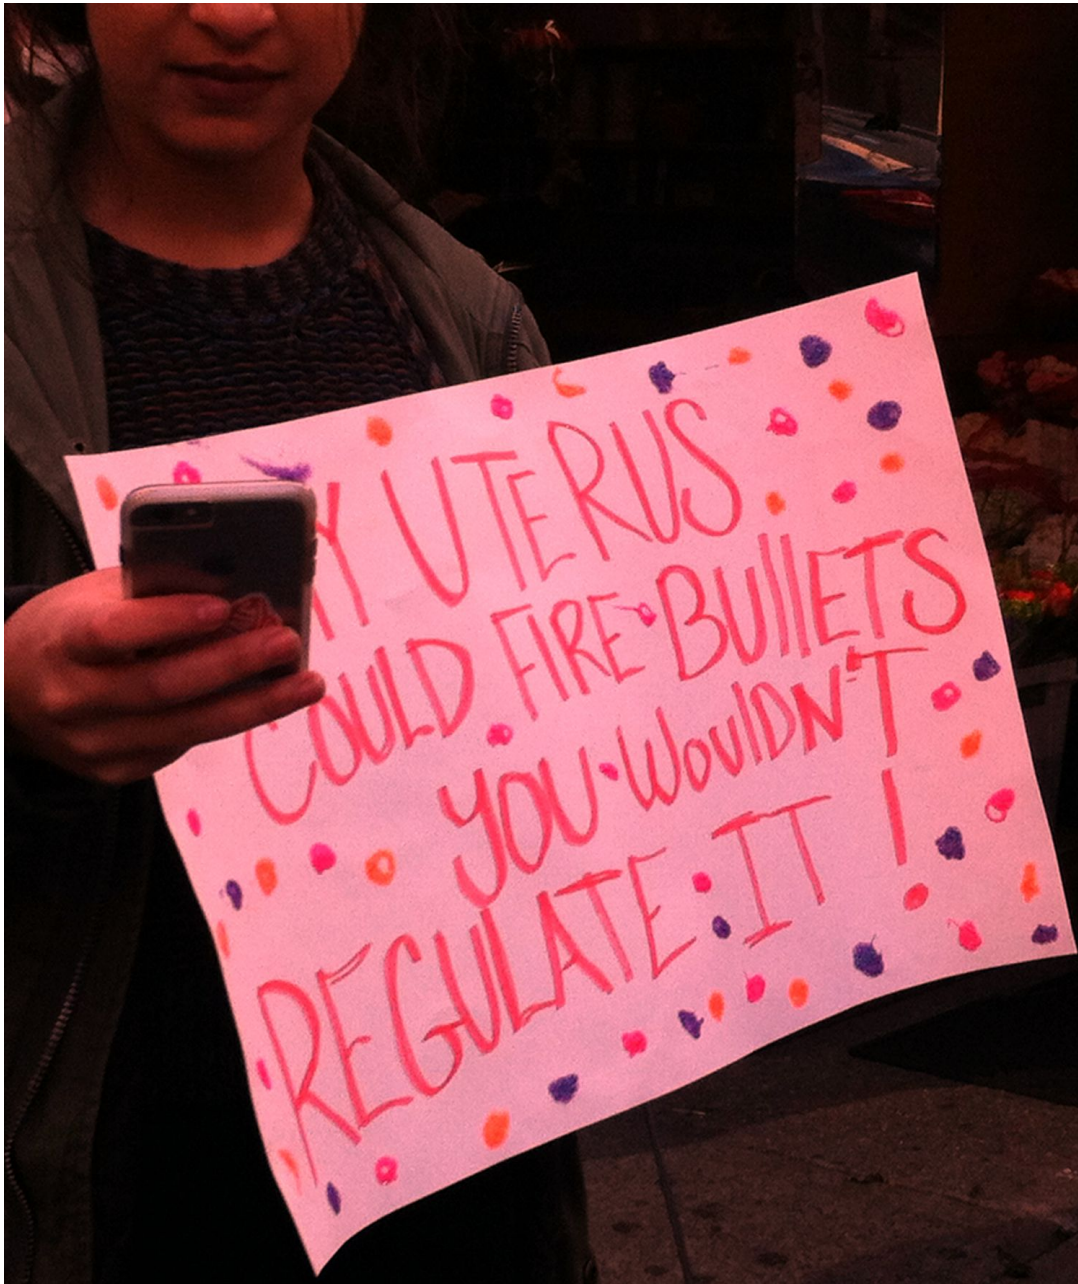 MY UTERUS
COULD FIRE BUllETS
YOU WOUlDN'T
REGULATE IT !